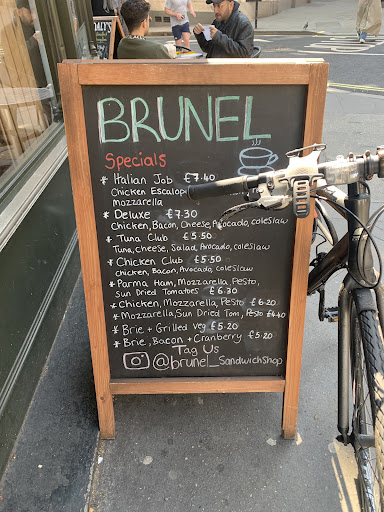 BRUNEL
Specials
* Italian Job £7.40
Chicken Escalop
mozzarella
* Deluxe £7.30
Chicken, Bacon, Cheese, Avocado, coleslaw
* Tuna Club £5.50
Tuna, Cheese, Salad, Avocado, Coleslaw
* Chicken Club £5.50
chicken, Bacon, Avocado, coleslaw
* Parma Ham, Mozzarella, Pesto,
Sun Dried Tomatoes £6.30
* Chicken, Mozzarella, Pesto £6.20
* Mozzarella, Sun Dried Tom, Pesto £4.40
* Brie + Grilled Veg £5.20
* Brie, Bacon + Cranberry £5.20
Tag Us
@brunel_Sandwichshop